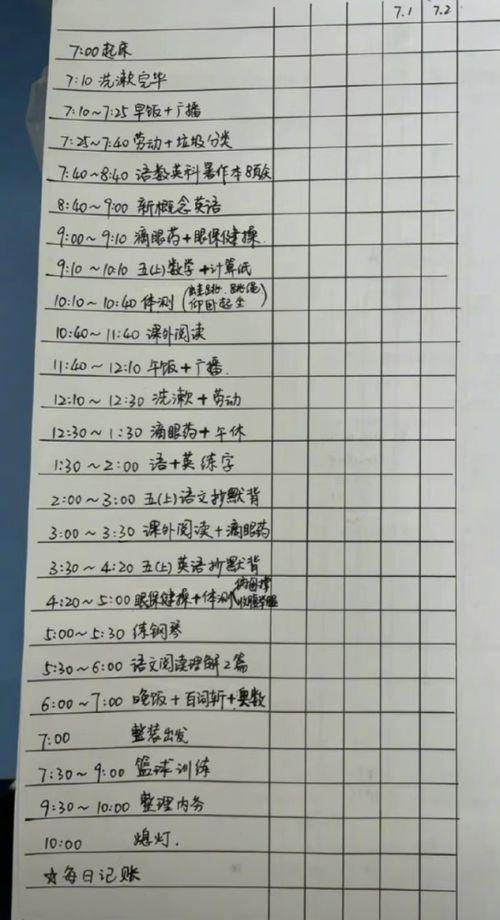 7.1 7.2
7:00 起床
7:10 洗漱完毕
7:10~7:25 早饭+广播
7:25~7:40 劳动+垃圾分类
7:40~8:40 语数英科暑作本8页
8:40~9:00 新概念英语
9:00~9:10 滴眼药+眼保健操
9:10~10:10 五(上)数学+计算纸
10:10~10:40 体测(蛙跳.跳绳
仰卧起坐)
10:40~11:40 课外阅读
11:40~12:10 午饭+广播.
12:10~12:30 洗漱+劳动
12:30~1:30 滴眼药+午休
1:30~2:00 语+英练字
2:00~3:00 五(上)语文抄默背
3:00~3:30 课外阅读+滴眼药
3:30~4:20 五(上)英语抄默背
4:20~5:00 眼保健操+体测
5:00~5:30 练钢琴
5:30~6:00 语文阅读理解2篇
6:00~7:00 晚饭+百词斩+奥数
7:00 整装出发
7:30~9:00 篮球训练
9:30~10:00 整理内务
10:00 熄灯.
☆每日记账